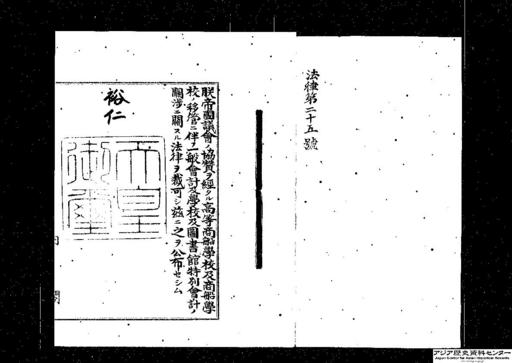 法律第二十五號
朕帝國議會ノ協賛ヲ經タル高等商船學校及商船學
校ノ移管ニ伴フ一般會計及學校及圖書館特別會計ノ
關渉ニ關スル法律ヲ裁可シ茲ニ之ヲ公布セシム
裕仁
天皇
御璽
内
閣
アジア歴史資料センター
Japan Center for Asian Historical Records